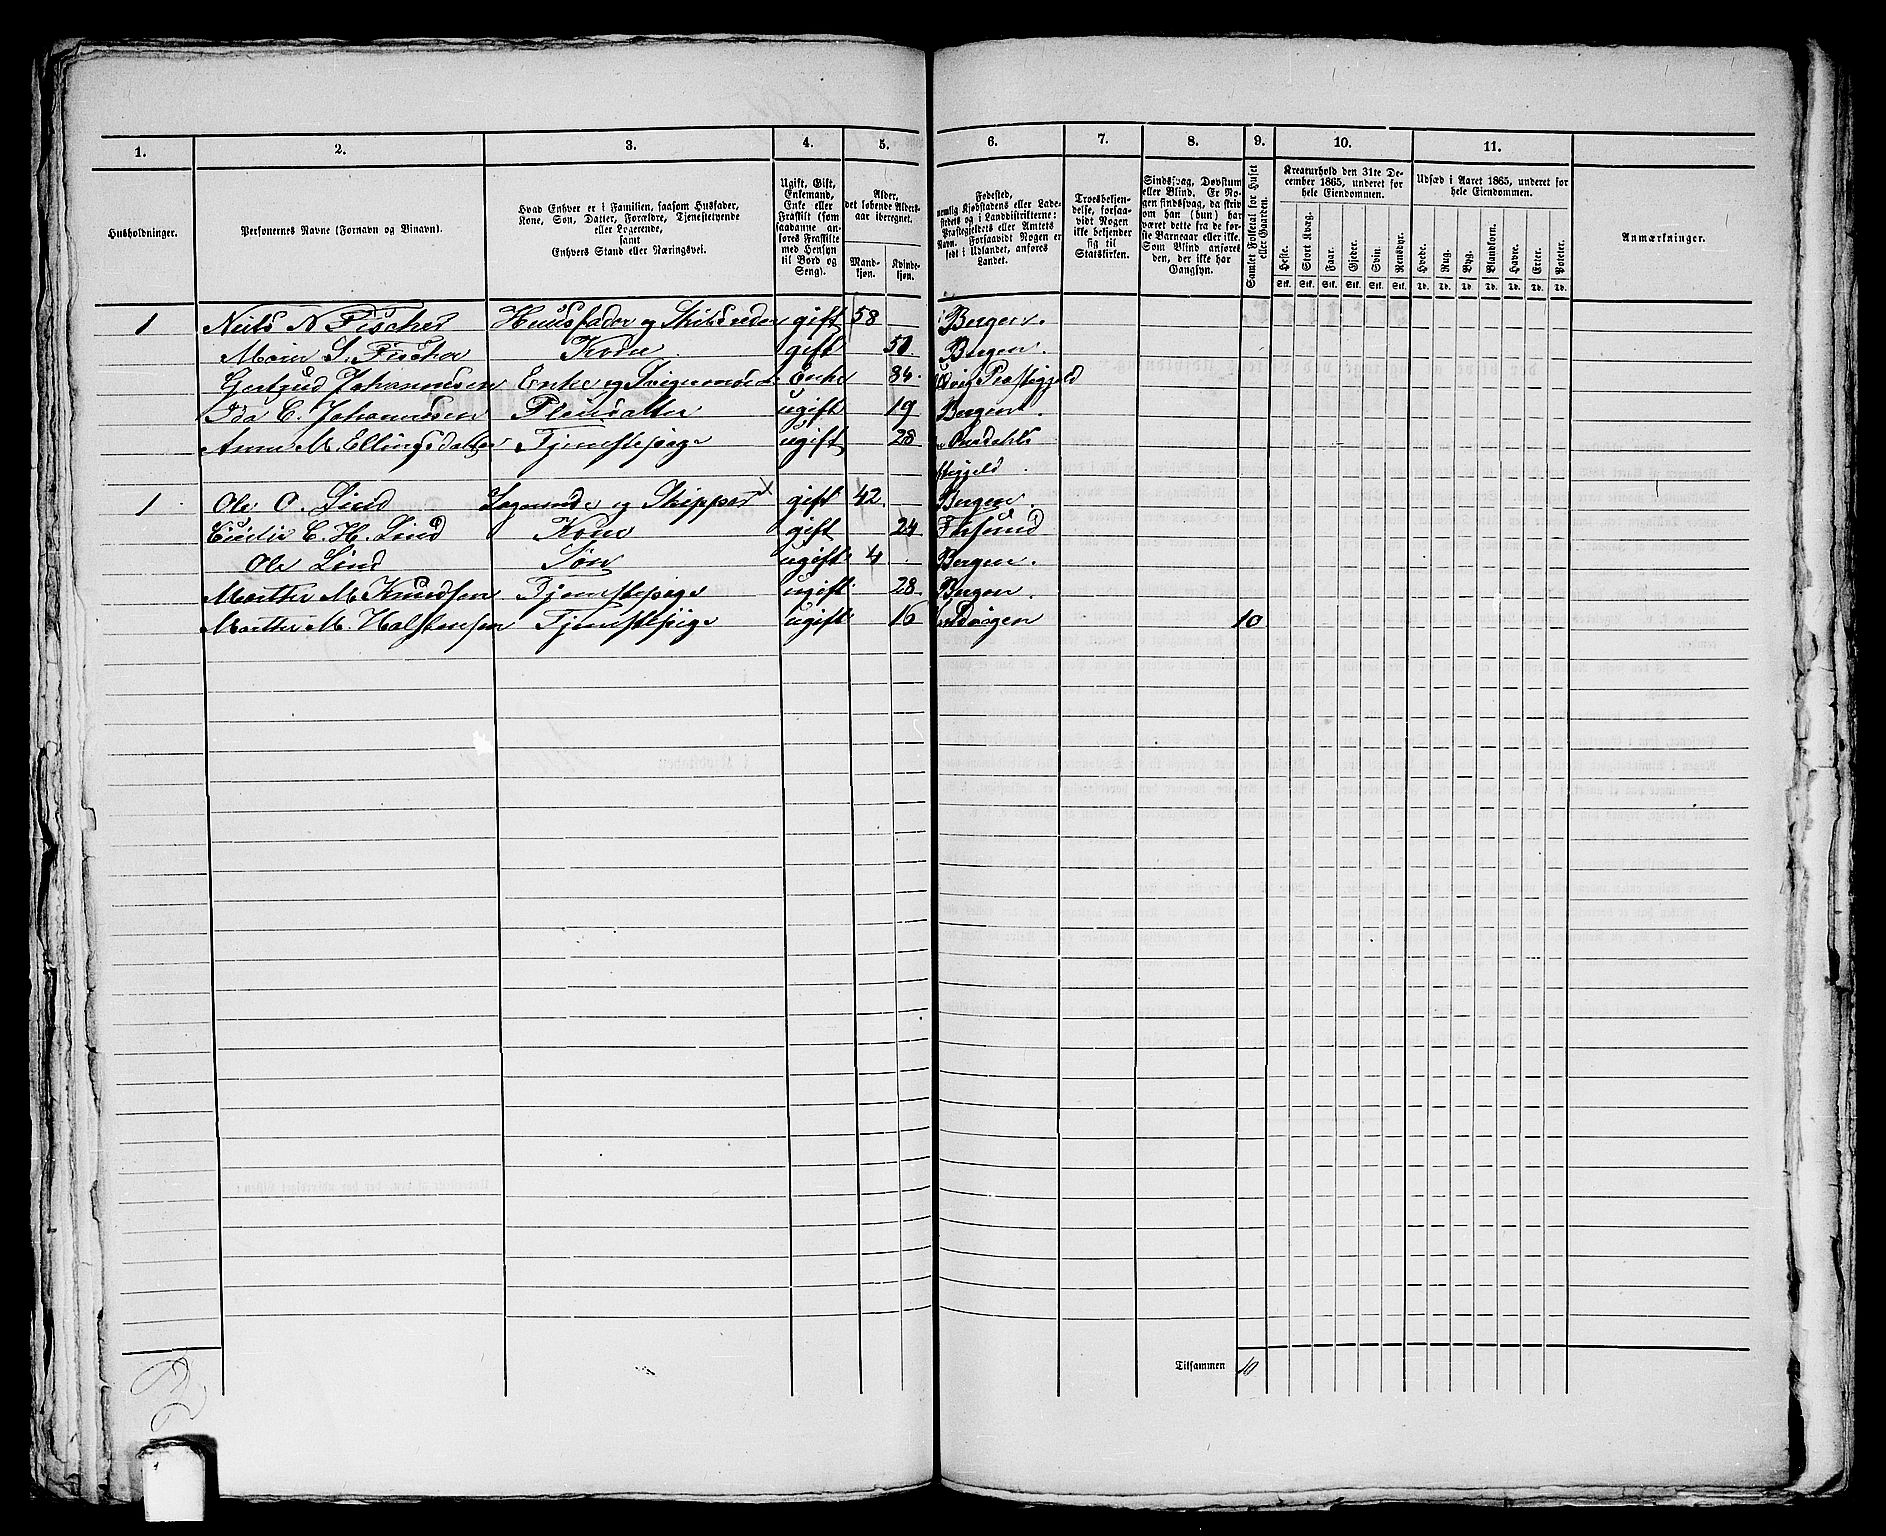 1. 2. 3. 4. 5. 6. 7. 8. 9. 10. 11.
Husholdninger.
Personernes Navne (Fornavn og Binavn).
Hvad Enhver er i Familien, saasom Husfader,
Kone, Søn, Datter, Forældre, Tjenestetyende
eller Logerende,
samt
Enhvers Stand eller Næringsvei.
Ugift, Gift,
Enkemand,
Enke eller
Fraskilt (som
saadanne an-
føres Fraskilte
med Hensyn
til Bord og
Seng).
Alder,
det løbende Alders-
aar iberegnet.
Mand-
kjøn.
Kvinde-
kjøn.
Fødested,
nemlig Kjøbstadens eller Lade-
stedets og i Landdistrikterne:
Præstegjeldets eller Amtets
Navn. Forsaavidt Nogen er
født i Udlandet, anføres
Landet.
Troesbekjen-
delse, forsaa-
vidt Nogen
ikke bekjender
sig til
Statskirken.
Sindssvag, Døvstum
eller Blind. Er No-
gen sindssvag, da skriv
om han (hun) har
været dette fra de før-
ste Barneaar eller ikke.
Som Blind anføres
den, der ikke har
Gangsyn.
Samlet Folketal for Huset
eller Gaarden.
Kreaturhold den 31te De-
cember 1865, underet for
hele Eiendommen.
Heste. Stort Kvæg. Faar. Gjeder. Svin. Rensdyr.
Stk. Stk. Stk. Stk. Stk. Stk.
Udsæd i Aaret 1865, underet for
hele Eiendommen.
Hvede. Rug. Byg. Blandkorn. Havre. Erter. Poteter.
Td. Td. Td. Td. Td. Td. Td.
Anmærkninger.
1 Niels N Fischer Huusfader og gift 58 Bergen.
S. Fischer Kone gift Bergen.
Gertrud Johannesen Enke og Enke
Ida C. Johannesen Pleiedatter ugift 19 Bergen.
Anne M. Ellingsdatter Tjenestepige ugift 28
1 Ole O. Lind Logerende og Skipper gift 42 Bergen.
C. H. Lind Kone gift 24
Ole Lind Søn ugift 4 Bergen.
Marthe M. Knudsen Tjenestepige ugift 28 Bergen.
Marthe M Halstensen Tjenestepige ugift 16 10
Tilsammen 10